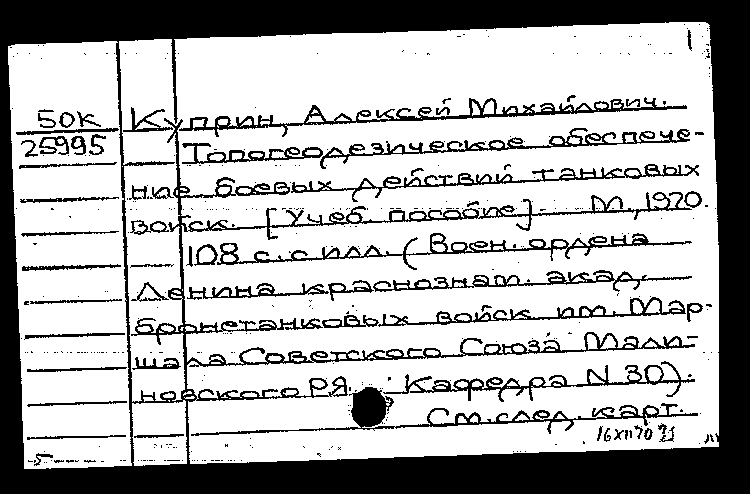 1
50К Куприн, Алексей Михайлович.
25995 Топогеодезическое обеспече-
ние боевых действий танковых
войск. [Учеб. пособие]. М., 1970.
108 с. с илл. (Воен. ордена
Ленина краснознам. акад.
бронетанковых войск им. Мар-
шала Советского Союза Мали-
новского Р.Я. Кафедра N 30).
См. след. карт.
16 XII 70